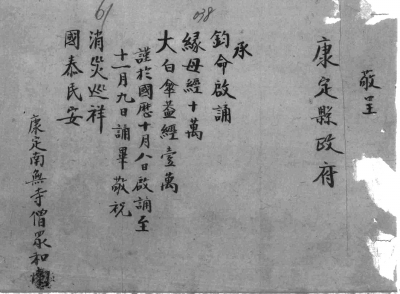 敬呈
康定縣政府
承
鈞命啟誦
緣母經十萬
大白傘蓋經壹萬
謹於國曆十月八日啟誦至
十一月九日誦畢敬祝
消災巡祥
國泰民安
康定南無寺僧眾和
61
038